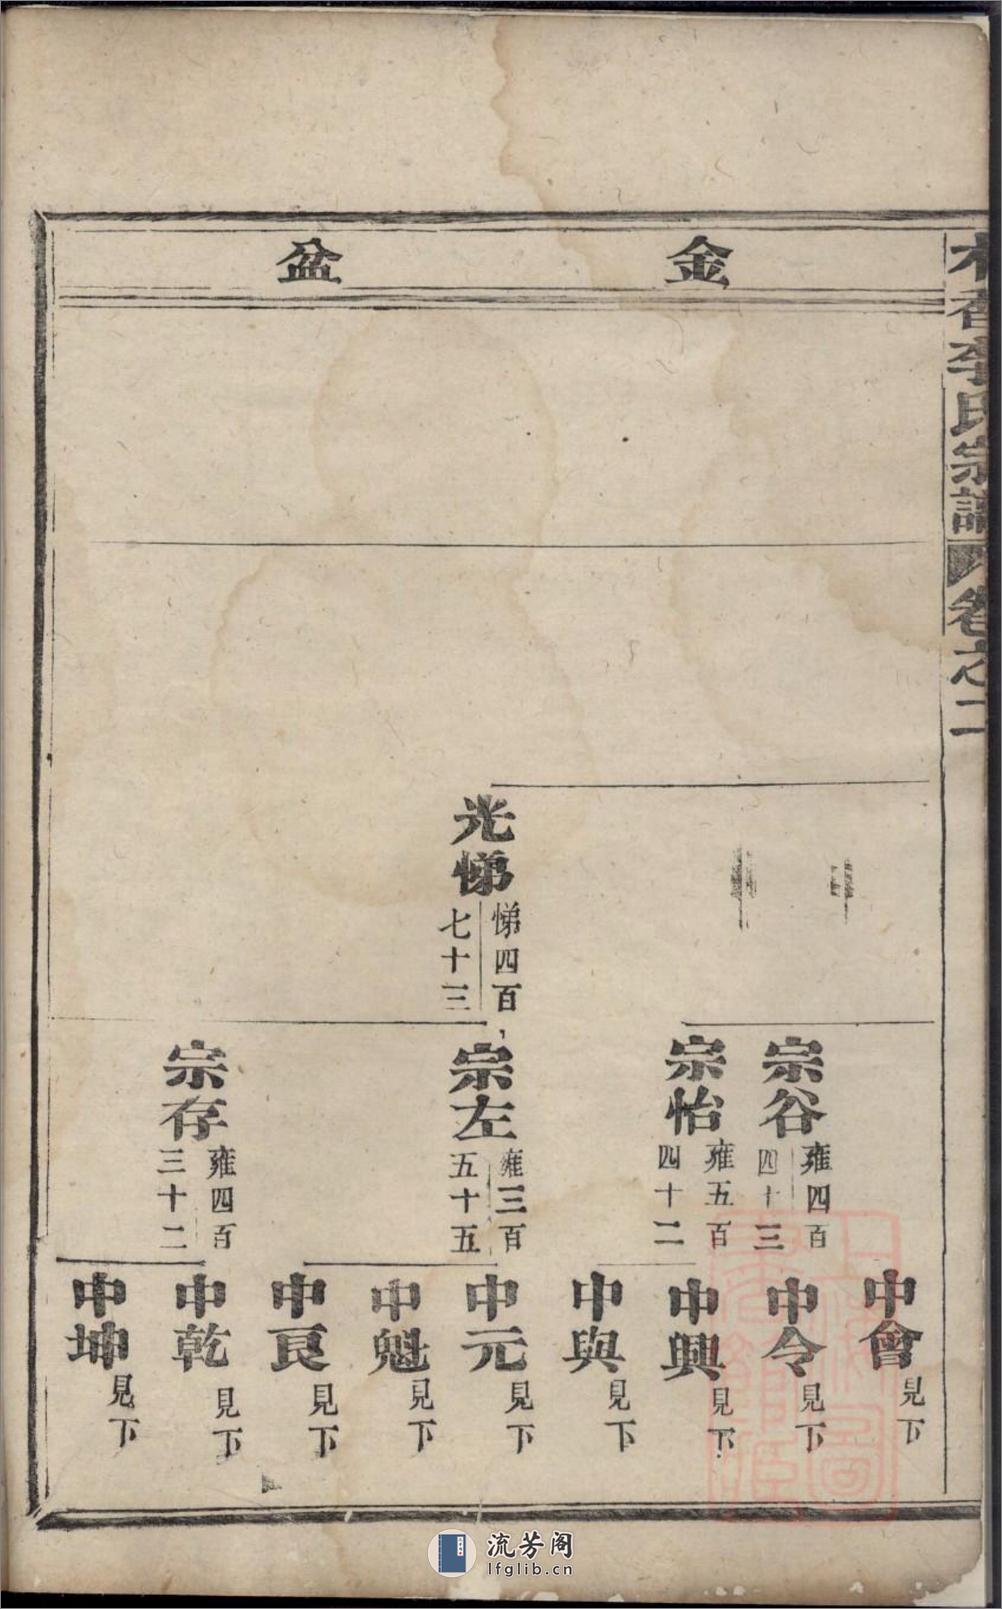 金盆
李氏宗譜 卷之二
光悌 悌四百七十三
宗谷 雍四百四十三
宗怡 雍五百四十二
宗左 雍三百五十五
宗存 雍四百三十二
中會 見下
中令 見下
中興 見下
中與 見下
中元 見下
中魁 見下
中艮 見下
中乾 見下
中坤 見下
流芳阁
lfglib.cn